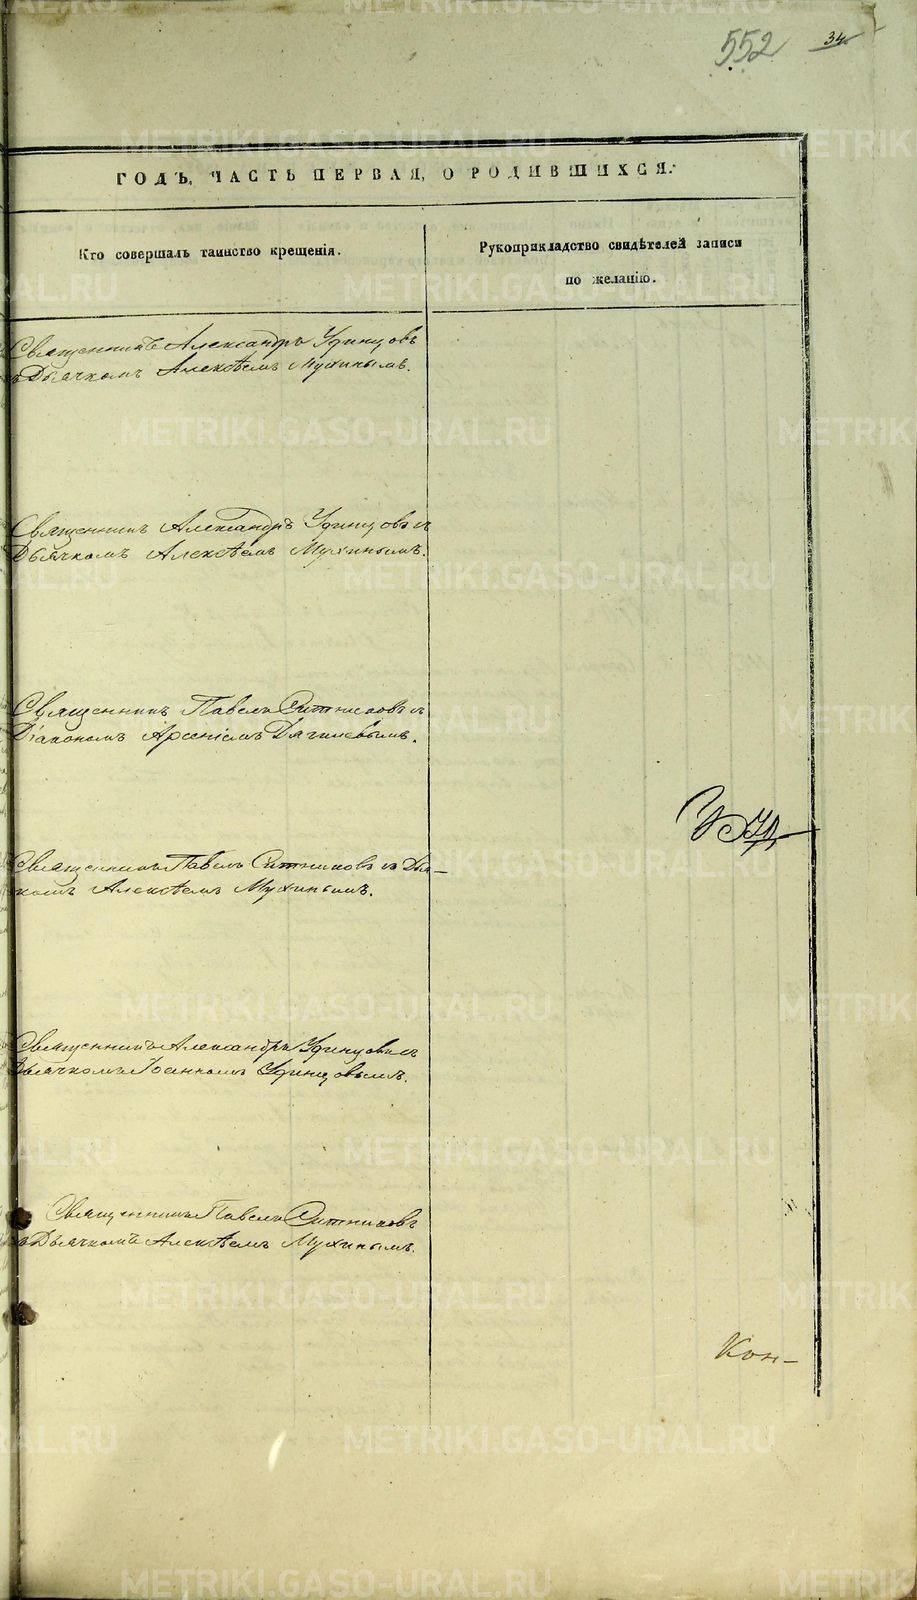 552 34
ГОДЪ, ЧАСТЬ ПЕРВАЯ, О РОДИВШИХСЯ.
Кто совершалъ таинство крещенія.
Рукоприкладство свидѣтелей записи
по желанію.
Священникъ Александръ Удинцовъ
съ Дьячкомъ Алексѣемъ Мухинымъ.
Священникъ Александръ Удинцовъ съ
Дьячкомъ Алексѣемъ Мухинымъ.
Священникъ Павелъ Ситниковъ съ
Діакономъ Арсеніемъ Дягилевымъ.
Священникъ Павелъ Ситниковъ съ Дья-
комъ Алексѣемъ Мухинымъ.
Священникъ Александръ Удинцовъ съ
Дьячкомъ Іоанномъ Удинцовымъ.
Священникъ Павелъ Ситниковъ
съ Дьячкомъ Алексѣемъ Мухинымъ.
Кон-
METRIKI.GASO-URAL.RU